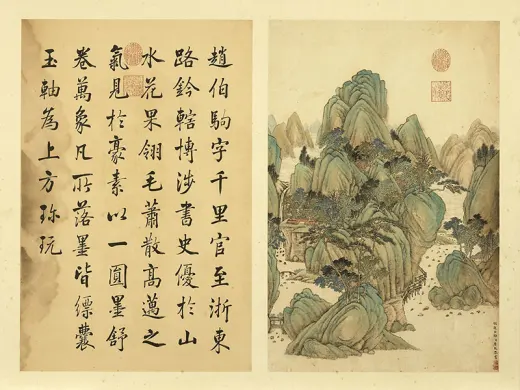 趙伯駒字千里官至浙東
路鈐轄博涉書史優於山
水花果翎毛蕭散高邁之
氣見於豪素以一圓墨舒
卷萬象凡所落墨皆縹囊
玉軸為上方珍玩